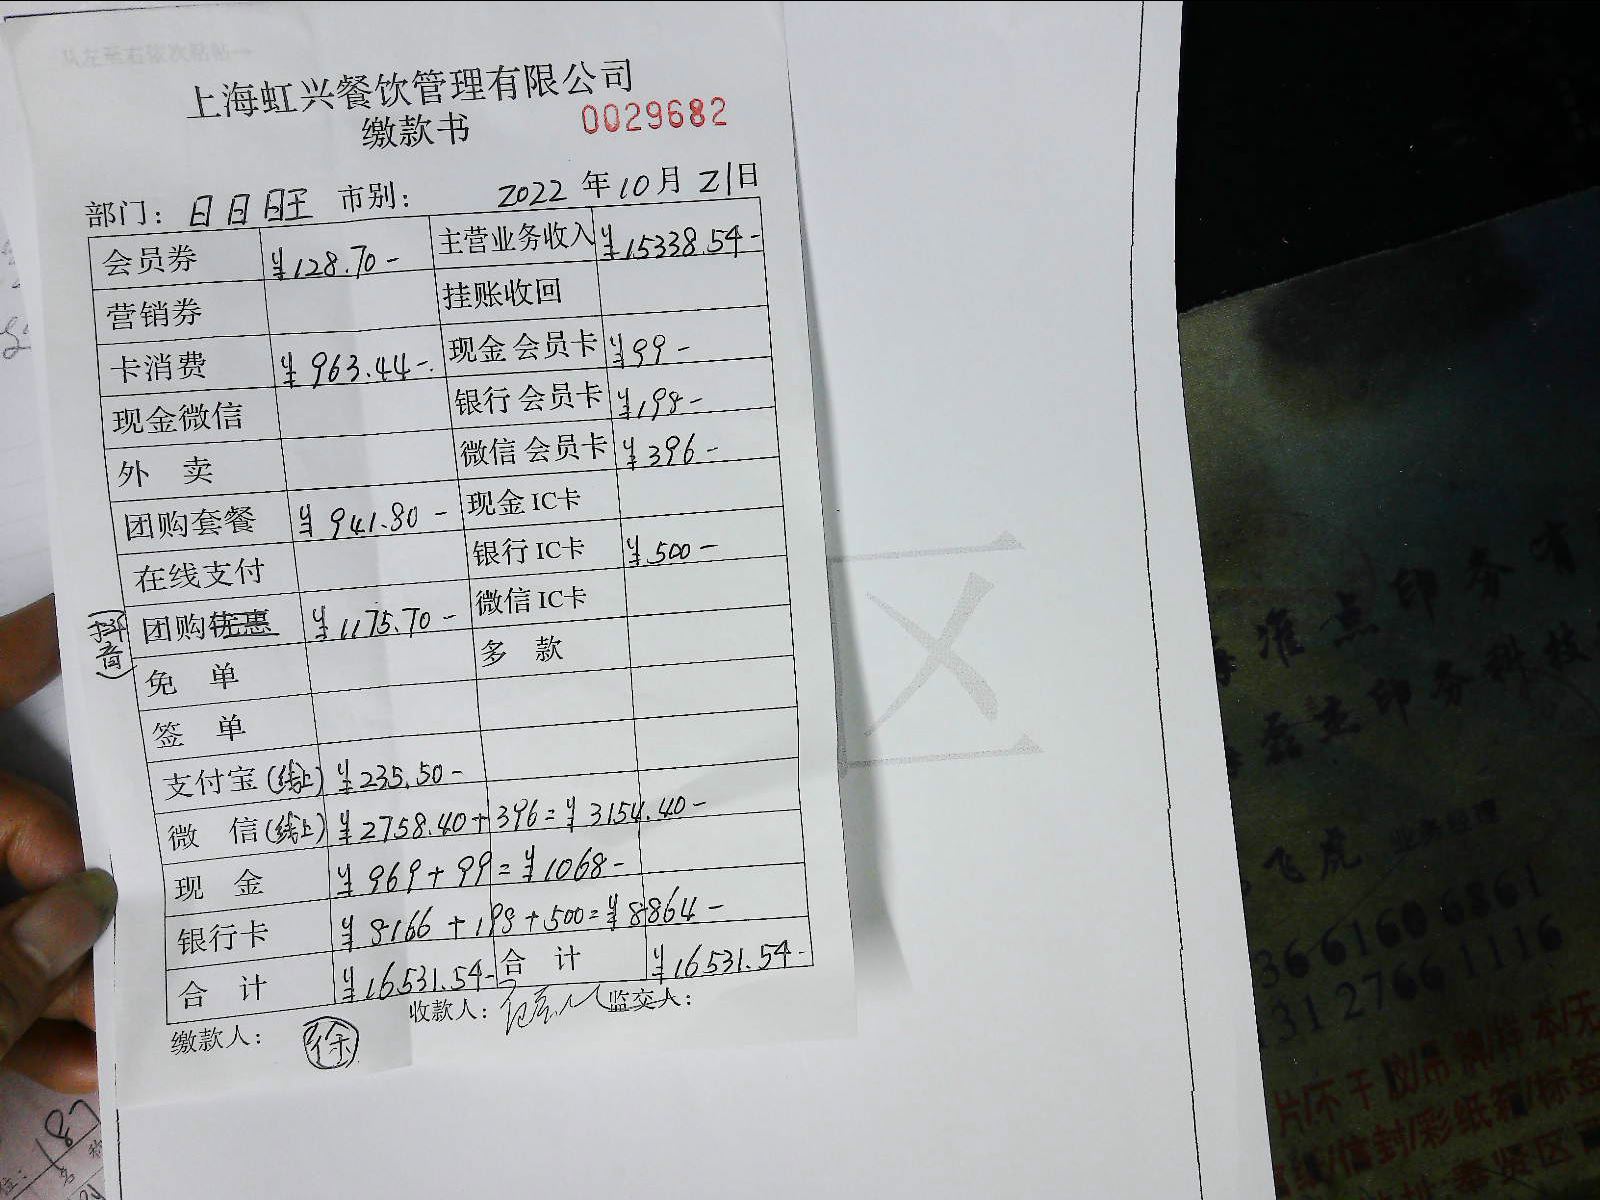 从左至右依次粘帖→
上海虹兴餐饮管理有限公司
缴款书
0029682
部门：日日旺 市别： 2022 年 10 月 21 日
会员券 ¥128.70- 主营业务收入 ¥15338.54-
营销券 挂账收回
卡消费 ¥963.44- 现金 会员卡 ¥99-
现金微信 银行 会员卡 ¥198-
外 卖 微信 会员卡 ¥396-
团购套餐 ¥941.80- 现金 IC卡
在线支付 银行 IC卡 ¥500-
(抖音) 团购优惠 ¥1175.70- 微信 IC卡
免 单 多 款
签 单
支付宝(线上) ¥235.50-
微 信(线上) ¥2758.40+396=¥3154.40-
现 金 ¥969+99=¥1068-
银行卡 ¥8166+198+500=¥8864-
合 计 ¥16531.54- 合 计 ¥16531.54-
缴款人： 徐 收款人： 监交人：
区
准点印务有
印务科技
飞虎 业务经理
3661606861
1312766 1116
片/不干胶/吊牌/样本/无
信封/彩纸箱/标签
奉贤区